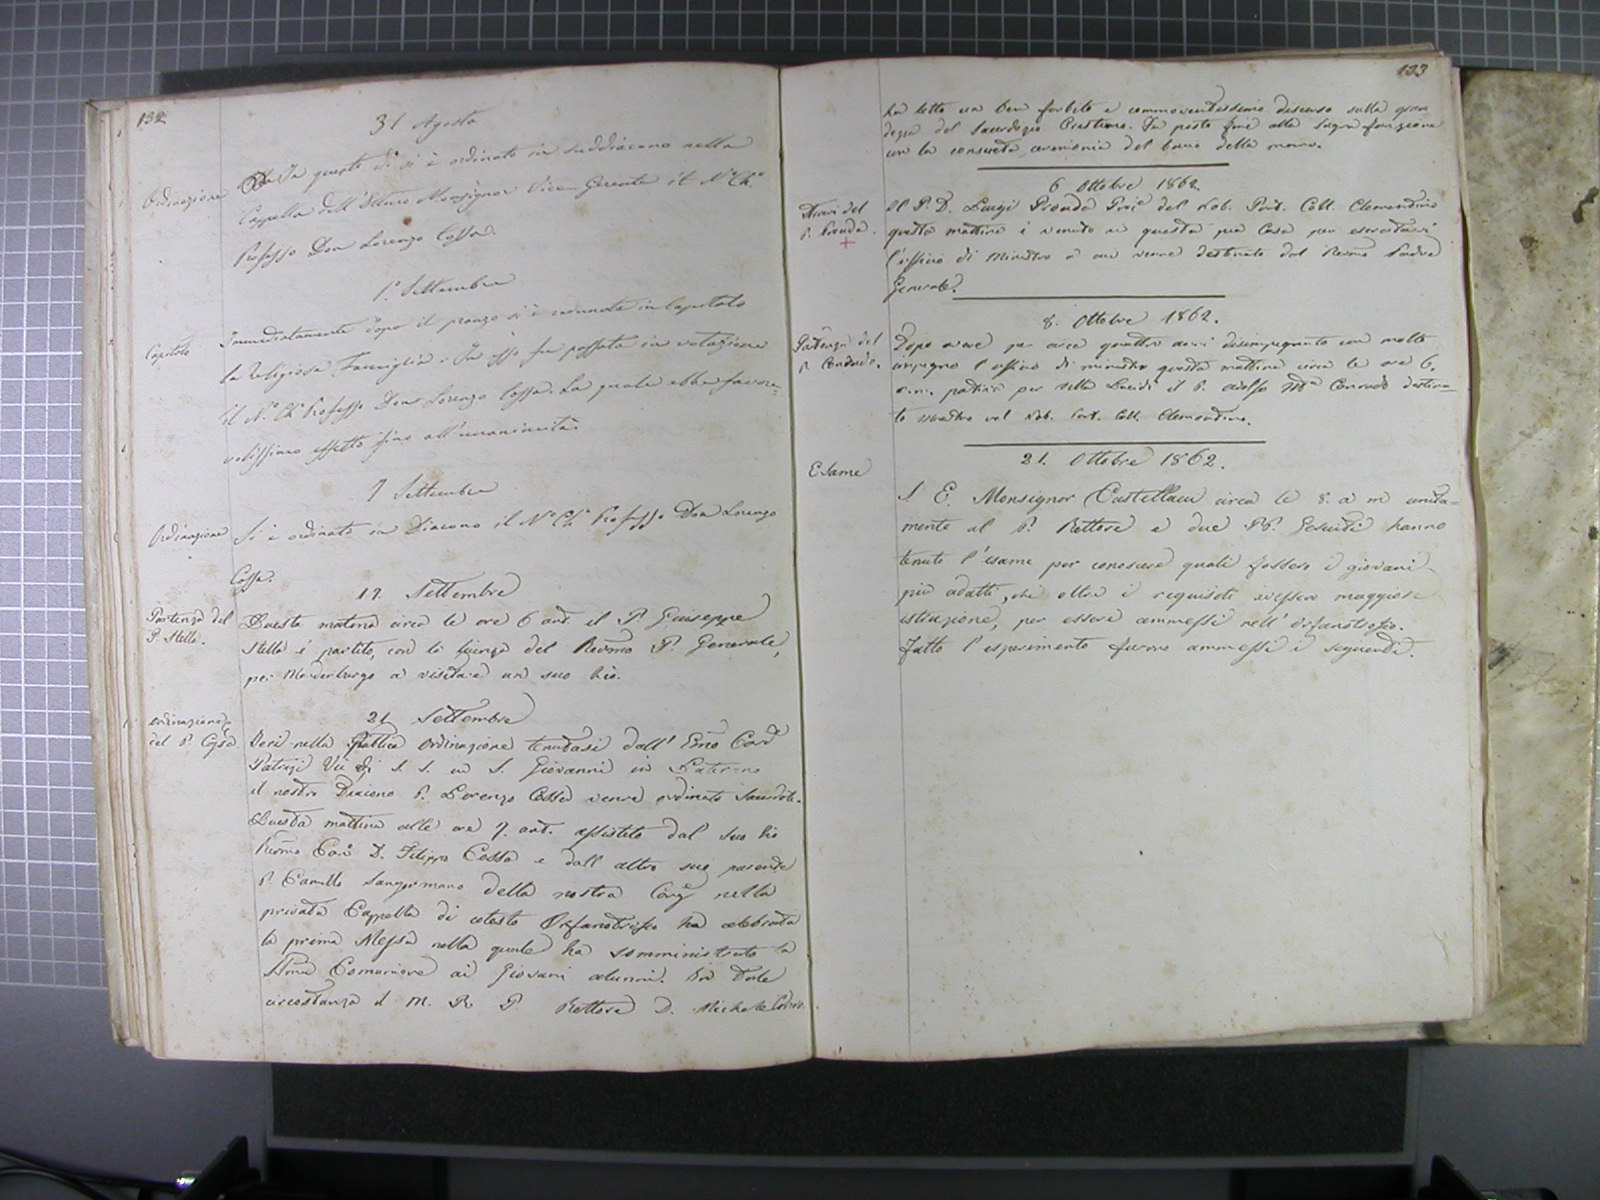 132
31 Agosto
Ordinazione
In questo dì si è ordinato in suddiacono nella
Cappella dell' Illmo Monsignor Vice-Gerente il N.o Ch.o
Professo Don Lorenzo Cossa.
1.o Settembre
Capitolo
Immediatamente dopo il pranzo si è riunita in Capitolo
la religiosa Famiglia. In esso fu passato in votazione
il N.o Ch.o Professo Don Lorenzo Cossa. La quale ebbe favore-
volissimo effetto fino all'unanimità.
7 Settembre
Ordinazione
Si è ordinato in Diacono il N.o Ch.o Professo Don Lorenzo
Cossa.
17. Settembre
Partenza del
P. Stella.
Questa matena circa le ore 6 ant. il P. Giuseppe
Stella è partito, con la licenza del Revmo P. Generale,
per a visitare un suo zio.
21 Settembre
Ordinazione
del P. Cossa
Ieri nella pubblica Ordinazione tenutasi dall' Emo Card
Patrizi Vic di S. S. in S. Giovanni in Laterano
il nostro Diacono P. Lorenzo Cossa venne ordinato Sacerdote.
Questa mattina alle ore 7. ant. assistito dal suo zio
Revmo Can. D. Filippo Cossa e dall altro suo parente
P. Camillo Sangermano della nostra Cong nella
privata Cappella di cotesto Orfanotrofio ha celebrata
la prima Messa nella quale ha somministrato la
Comunione ai Giovani alunni. In tale
circostanza il M. R. P. Rettore D. Michele
133
ha letto un ben forbito e commoventissimo discorso sulla gran
dezza del Sacerdozio Cristiano. Fu posto fine alla Sagra funzione
con la consueta cerimonia del bacio della mano.
6 Ottobre 1862.
Arrivo del
P.
Il P. D. Luigi del Nob. Pont. Coll. Clementino
questa mattina è venuto in questa pia Casa per esercitarvi
l'officio di Ministro a cui venne destinato dal Revmo Padre
Generale.
8. Ottobre 1862.
Partenza del
P. Conrado.
Dopo avere per circa quattro anni disimpegnato con molto
impegno l'officio di ministro questa mattina circa le ore 6.
il P. Adolfo Ma Conrado destina-
to nel Nob. Pont. Coll. Clementino.
21. Ottobre 1862.
Esame
S. E. Monsignor Castellacci circa le 8. a m unita-
mente al P. Rettore e due PP. Gesuiti hanno
tenuto l'esame per conoscere quali fossero i giovani
più adatti, che oltre i requisiti avessero maggiore
istruzione, per essere ammessi nell' orfanotrofio.
Fatto l'esperimento furono ammessi i seguenti.